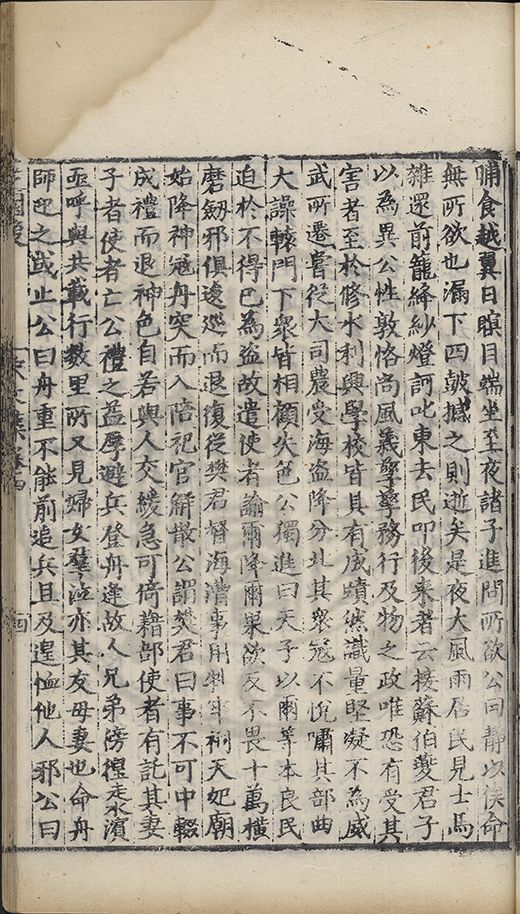 晡食越翼日瞑目端坐至夜諸子進問所欲公曰靜以俟命
無所欲也漏下四皷撼之則逝矣是夜大風雨居民見士馬
雜還前籠絳紗燈訶叱東去民叩後來者云接蘇伯夔君子
以為異公性敦恪尚風義孳孳務行及物之政唯恐有受其
害者至於修水利興學校皆具有成蹟然識量堅凝不為威
武所遷嘗從大司農受海盜降分北其衆寇不悅嘯其部曲
大譟轅門下衆皆相顧失色公獨進曰天子以爾等本良民
迫於不得已為盜故遣使者諭爾降爾果欲反不畏十萬橫
磨劒邪俱逡巡而退復從樊君督海漕事用刲牢祠天妃廟
始降神寇舟突而入陪祀官觧散公謂樊君曰事不可中輟
成禮而退神色自若與人交緩急可倚藉部使者有託其妻
子者使者亡公禮之益厚避兵登舟逢故人兄弟傍徨走水濱
亟呼與共載行數里所又見婦女羣泣亦其友母妻也命舟
師迎之或止公曰舟重不能前追兵且及遑恤他人邪公曰
四